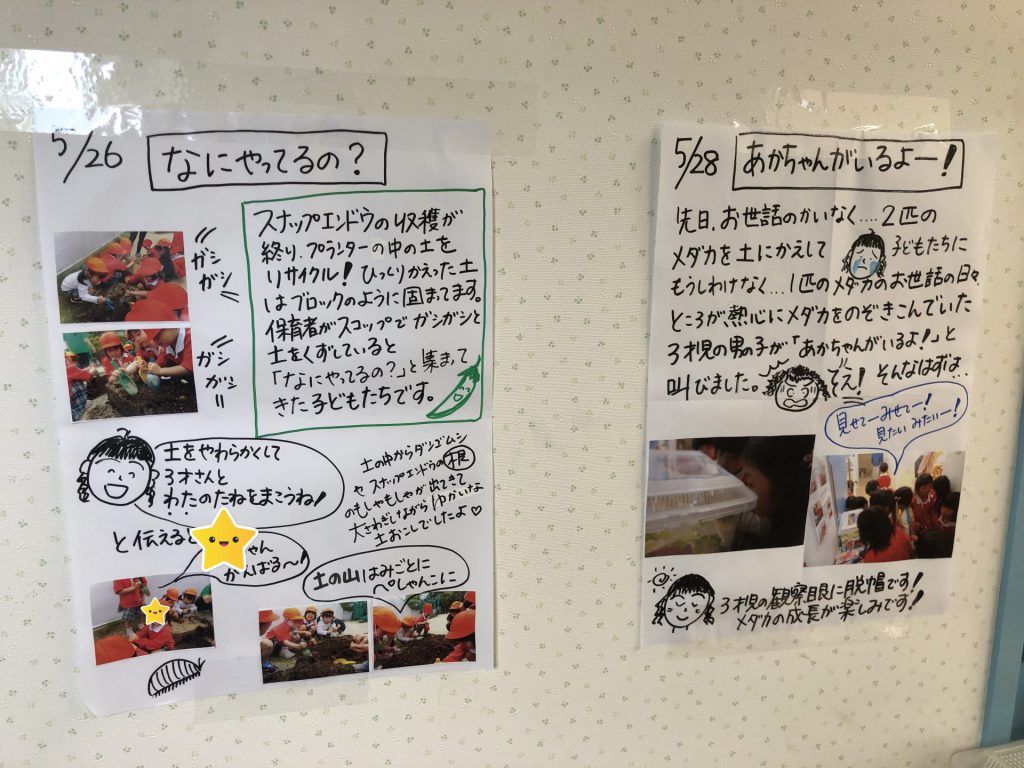 5/26 なにやってるの?
ガシ
ガシ
ガシ
ガシ
スナップエンドウの収穫が
終り、プランターの中の土を
リサイクル! ひっくりかえった土
はブロックのように固まってます。
保育者がスコップでガシガシと
土をくずしていると
「なにやってるの?」と集まって
きた子どもたちです。
土をやわらかくして
3才さんと
わたのたねをまこうね!
と伝えると
ちゃん
がんばる〜!
土の中からダンゴムシ
や スナップエンドウの根
のもしゃもしゃが出てきて
大さわぎしながら ゆかいな
土おこしでしたよ♡
土の山はみごとに
ぺしゃんこに
5/28 あかちゃんがいるよー!
先日、お世話のかいなく‥‥2匹の
メダカを土にかえして 子どもたちに
もうしわけなく…1匹のメダカのお世話の日々
ところが、熱心にメダカをのぞきこんでいた
3才児の男の子が「あかちゃんがいるよ!」と
叫びました。 でえ! そんなはずは…
見せてーみせてー!
見たい みたいー!
3才児の観察眼に脱帽です!
メダカの成長が楽しみです!